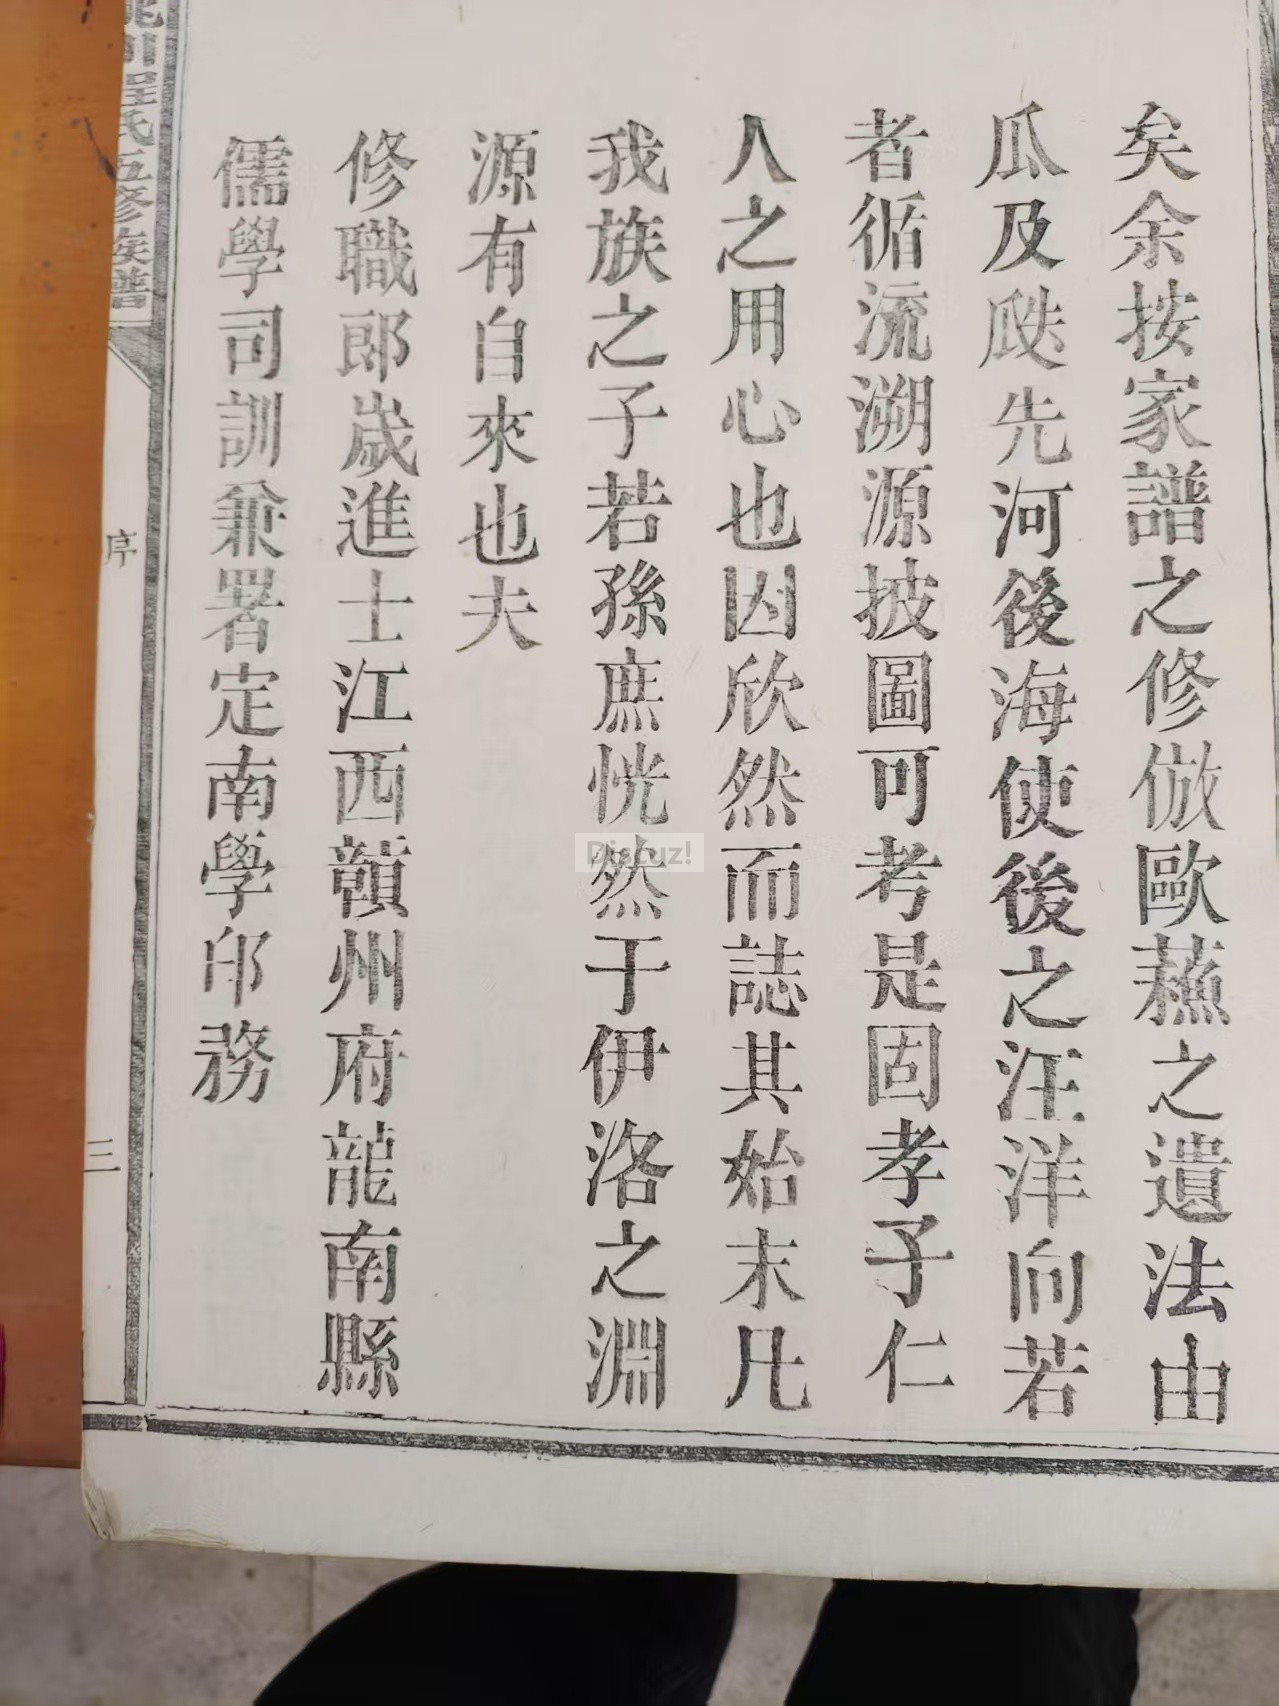 矣余按家譜之修倣歐蘓之遺法由
瓜及瓞先河後海使後之汪洋向若
者循流溯源披圖可考是固孝子仁
人之用心也因欣然而誌其始末凡
我族之子若孫庶恍然于伊洛之淵
源有自來也夫
修職郎歲進士江西贛州府龍南縣
儒學司訓兼署定南學印務
川程氏五修族譜
序
三
Discuz!